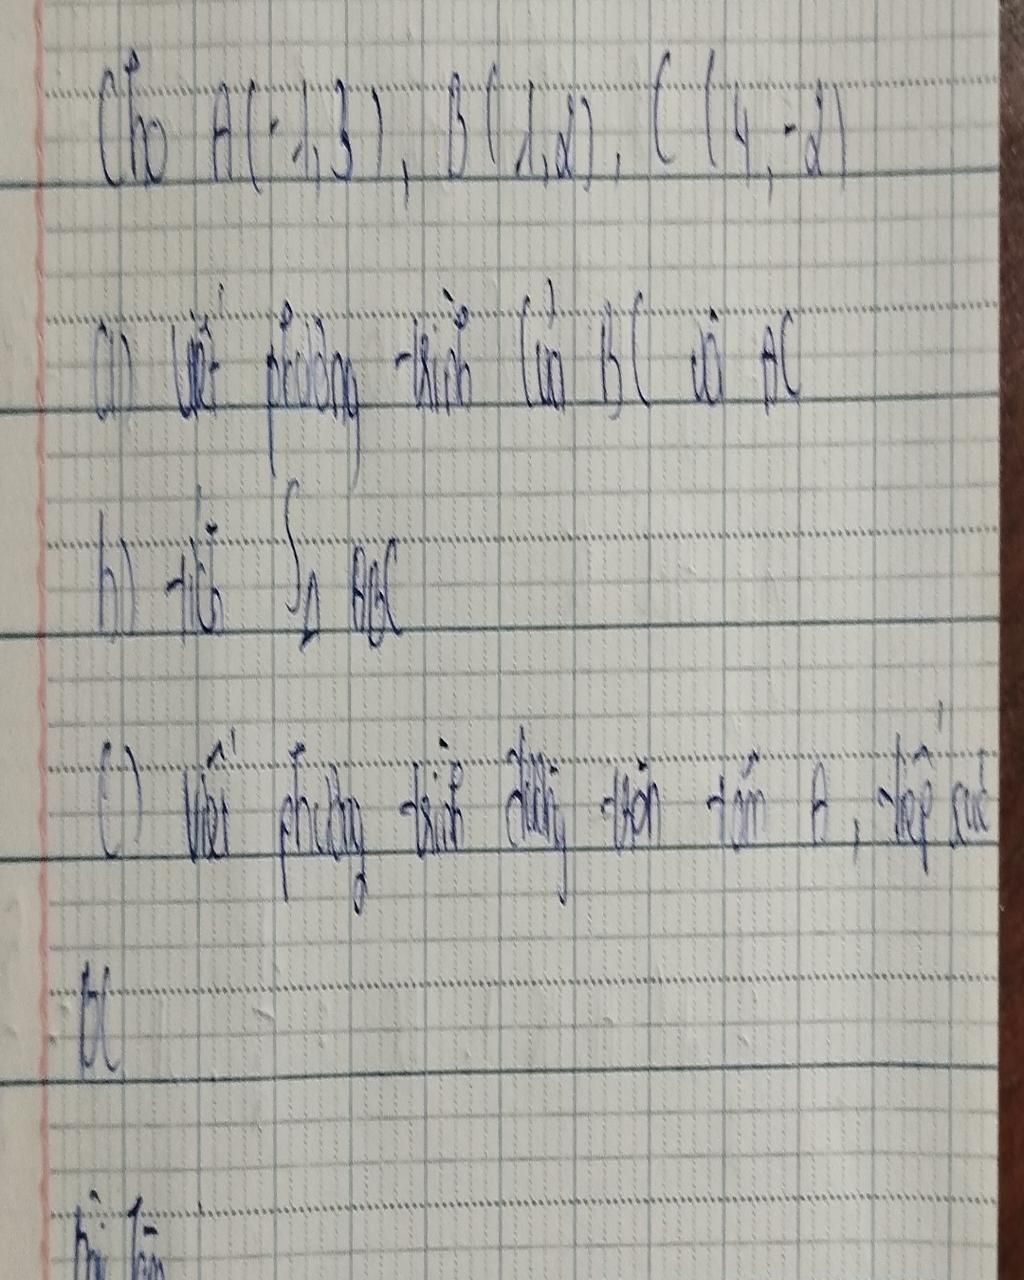 Cho A(-1,3), B(1,2), C(4,-2)
a) Viết phương trình của BC và AC
b) tích S∆ ABC
c) Viết phương trình đường tròn tâm A, tiếp xúc
BC